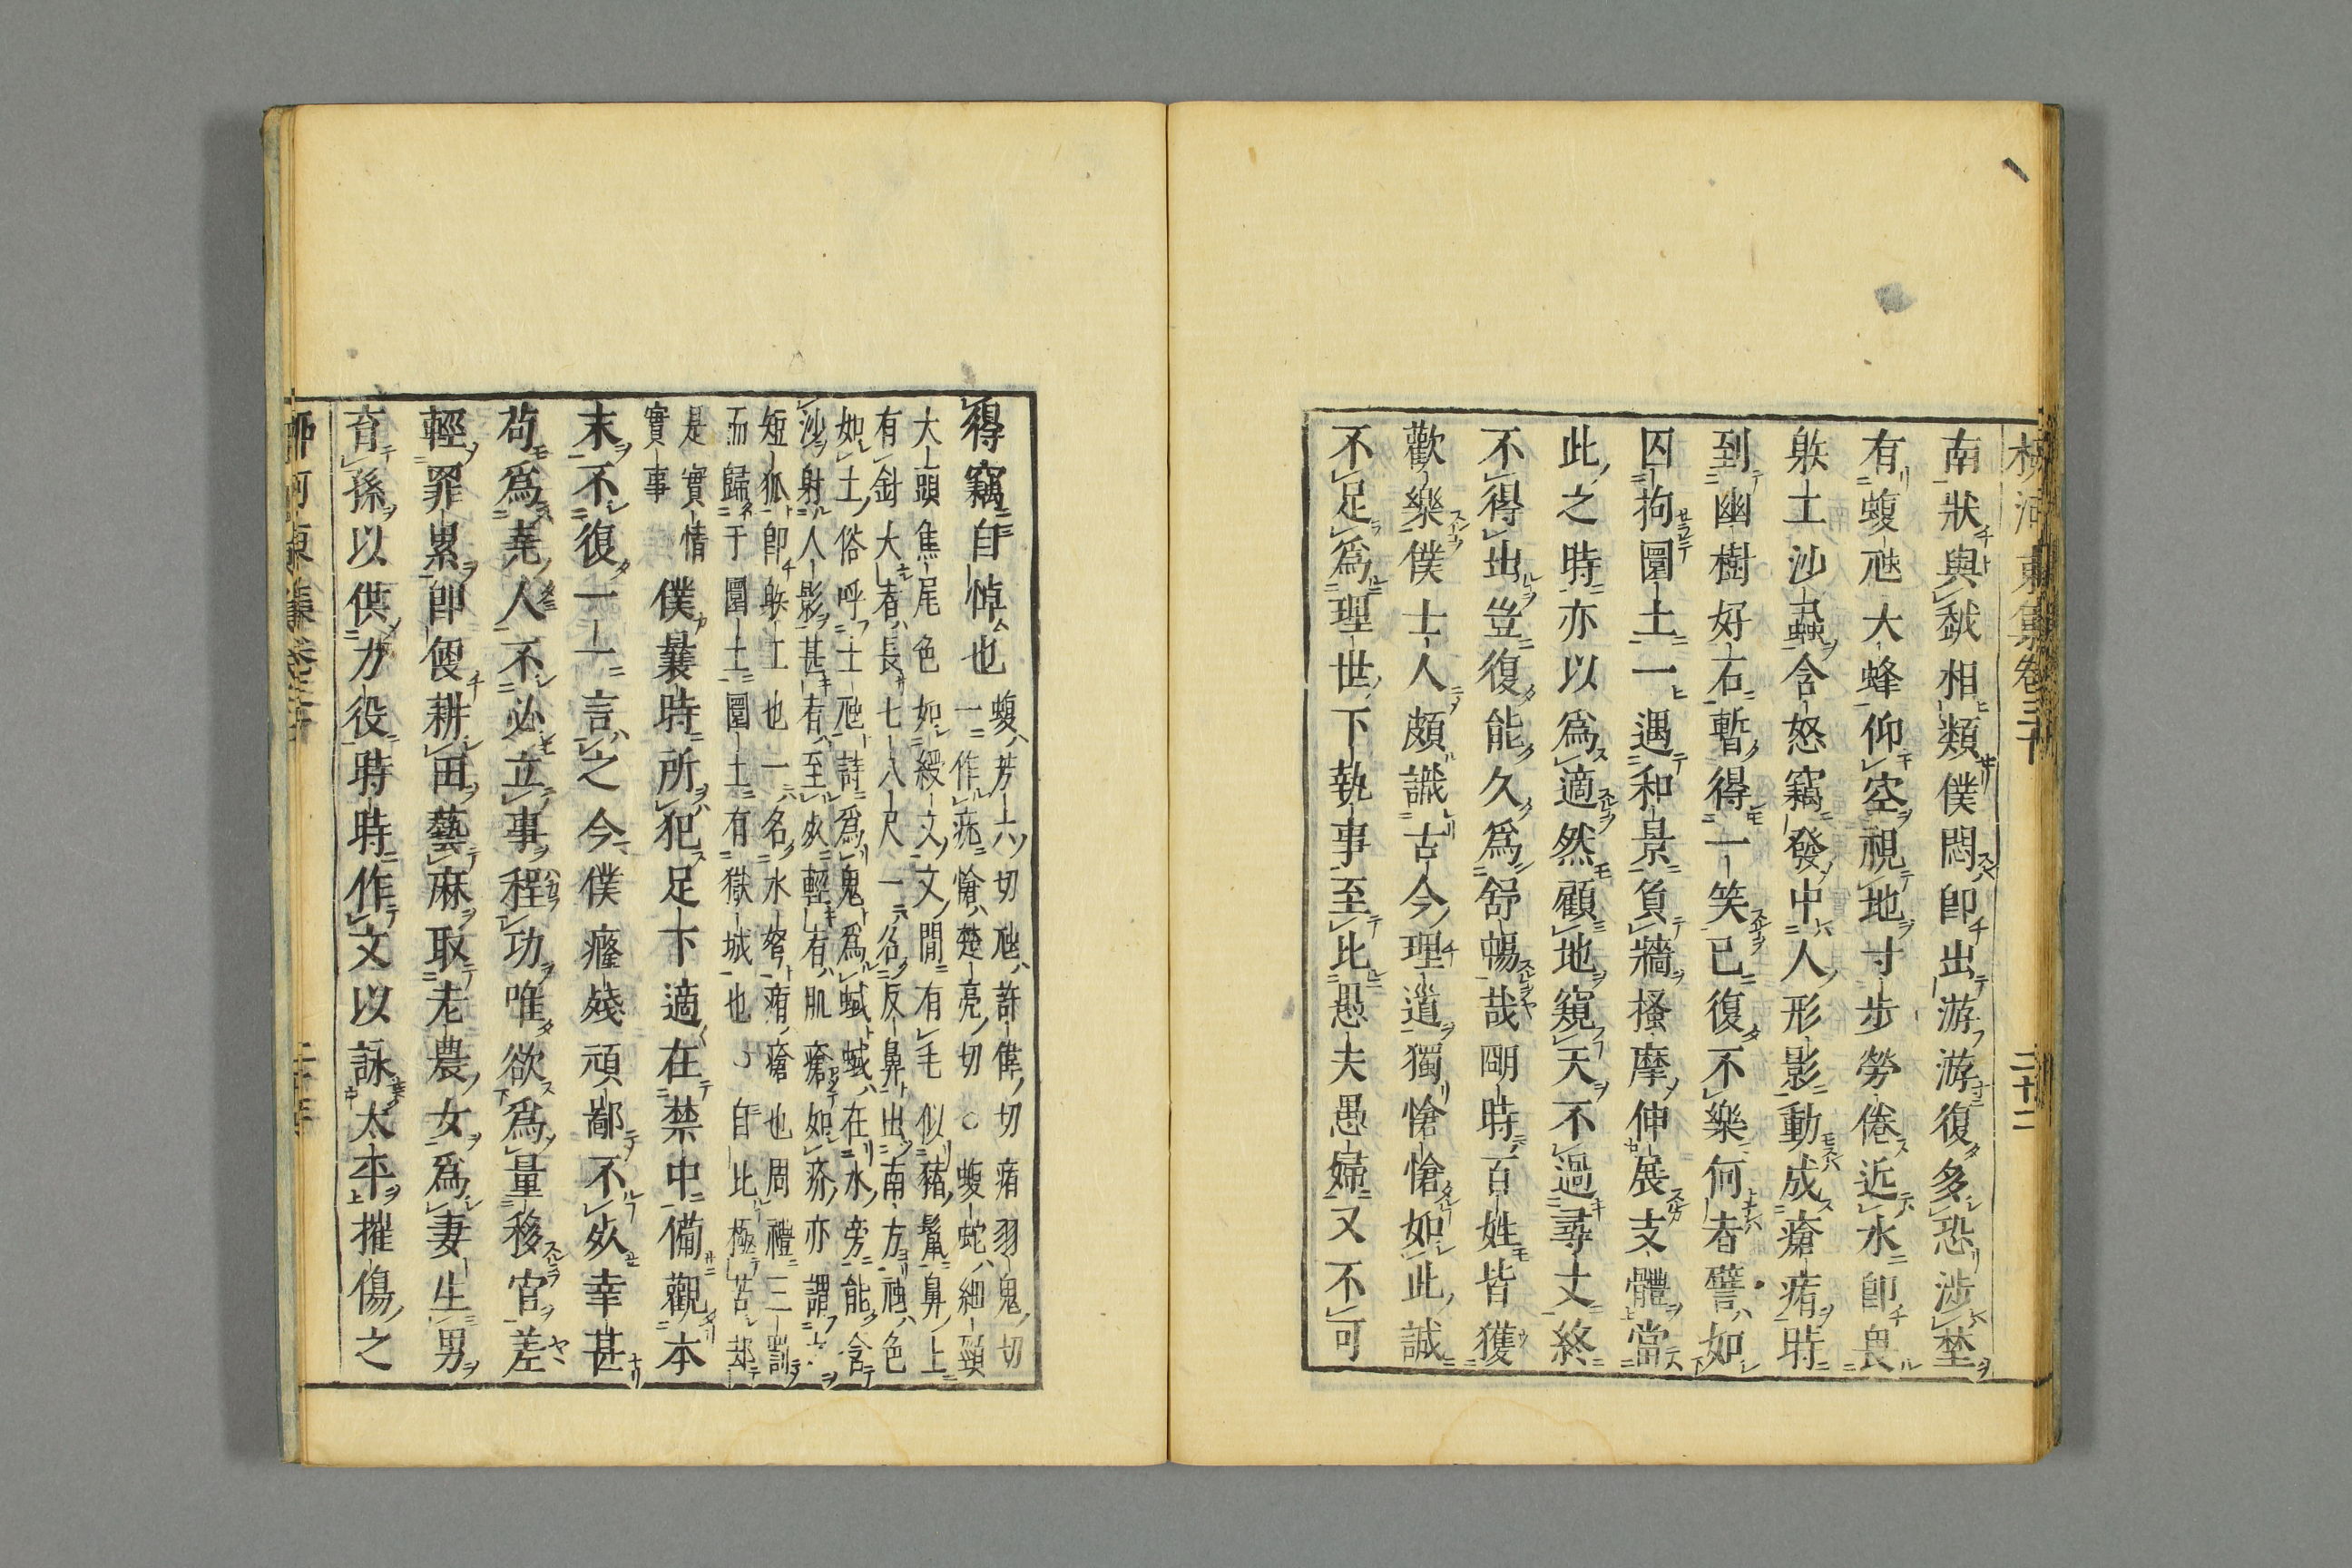 柳河東集卷三十 二十二
南狀與越相類僕悶即出游游復多恐涉埜
有蝮虺大蜂仰空視地寸步勞倦近水即畏
躲工沙蝨含怒竊發中人形影動成瘡痏時
到幽樹好石暫得一笑已復不樂何者譬如
囚拘圜土一遇和景負牆搔摩伸展支體當
此之時亦以爲適然顧地窺天不過尋丈終
不得出豈復能久爲舒暢哉明時百姓皆獲
歡樂僕士人頗識古今理道獨愴愴如此誠
不足爲理世下執事至比愚夫愚婦又不可
得竊自悼也
蝮芳六切虺許偉切痏羽鬼切
一作疣愴楚亮切○蝮蛇細頸
大頭焦尾色如綬文文間有毛似猪鬣鼻上
有針大者長七八尺一名反鼻出南方虺色
如土俗呼土虺詩爲鬼爲蜮蜮在水旁能含
沙射人影甚者至死輕有肌瘡如疥亦謂之
短狐即躲工也一名水弩痏瘡也周禮三罰
而歸于圜土圜土有獄城也○自比極苦却
是實情
實事
僕曩時所犯足下適在禁中備觀本
末不復一一言之今僕癃殘頑鄙不死幸甚
苟爲堯人不必立事程功唯欲爲量移官差
輕罪累即便耕田藝麻取老農女爲妻生男
育孫以供力役時時作文以詠太平摧傷之
柳河東集卷三十 二十三